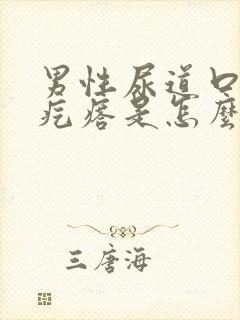 男性尿道口
疙瘩是怎麼
三唐海